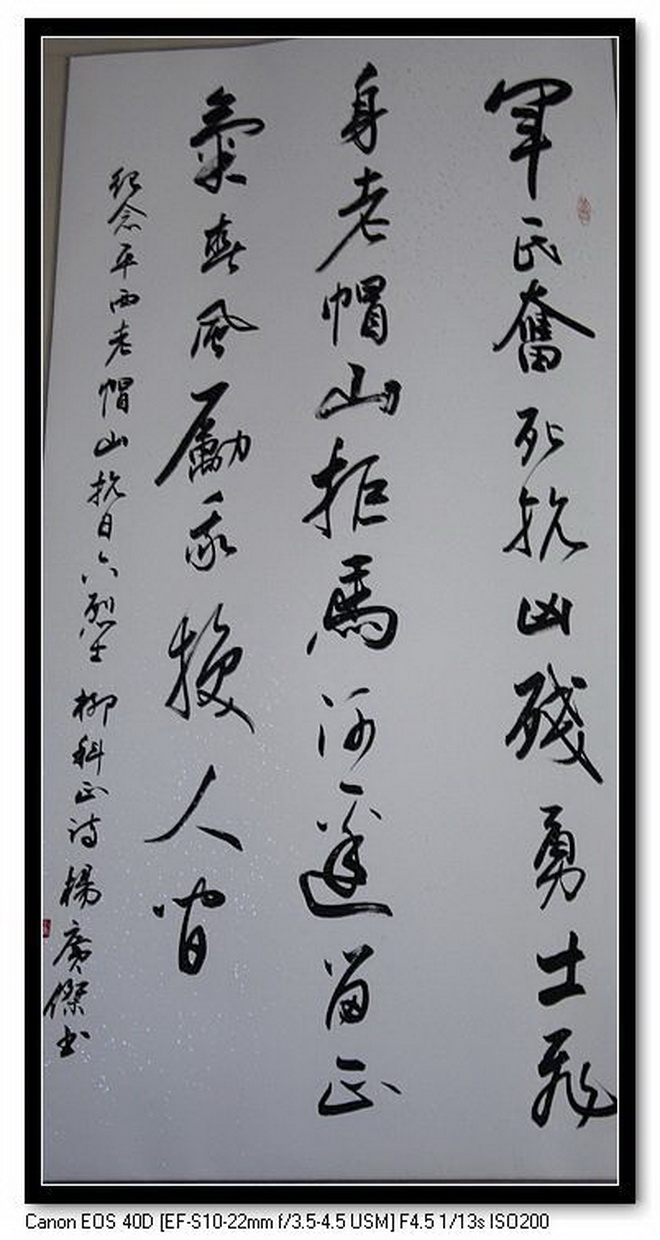 軍民奮死抗凶殘勇士飛
身老帽山拒馬河邊留正
氣春風勵我換人间
紀念平西老帽山抗日六烈士 柳科正诗 楊廣傑书
Canon EOS 40D [EF-S10-22mm f/3.5-4.5 USM] F4.5 1/13s ISO200